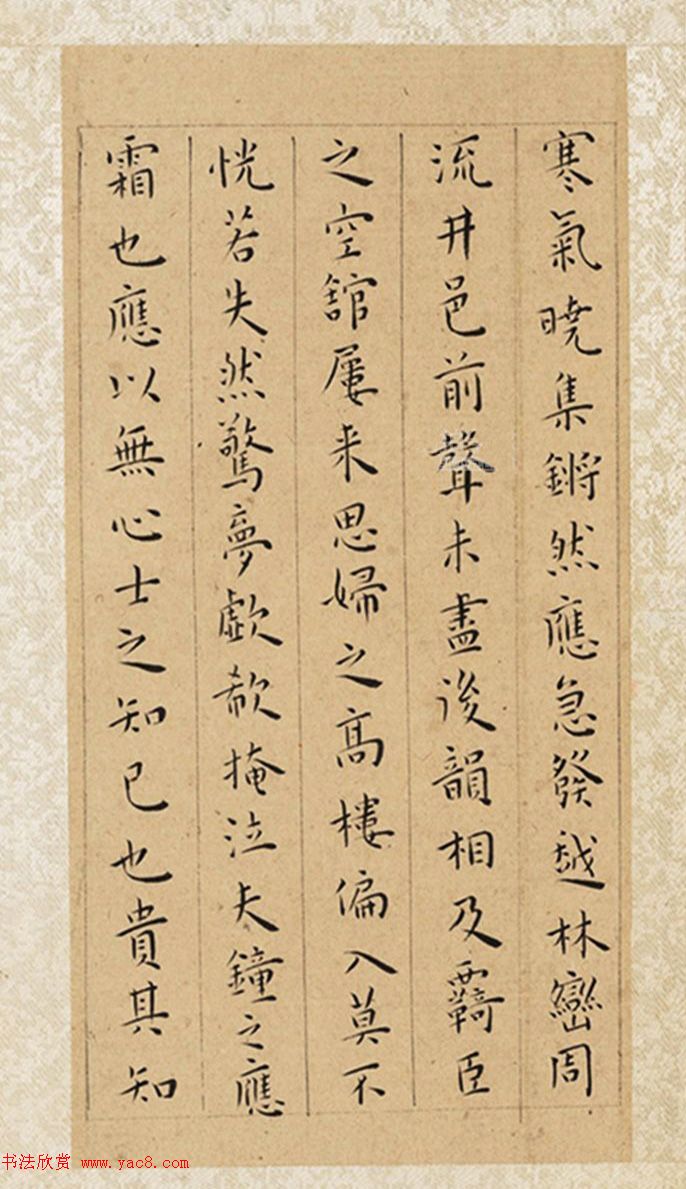 寒氣曉集鏘然應急發越林巒周
流井邑前聲未盡後韻相及覊臣
之空舘屢来思婦之高樓偏入莫不
怳若失然驚夢歔欷掩泣夫鐘之應
霜也應以無心士之知已也貴其知
书法欣赏 www.yac8.com